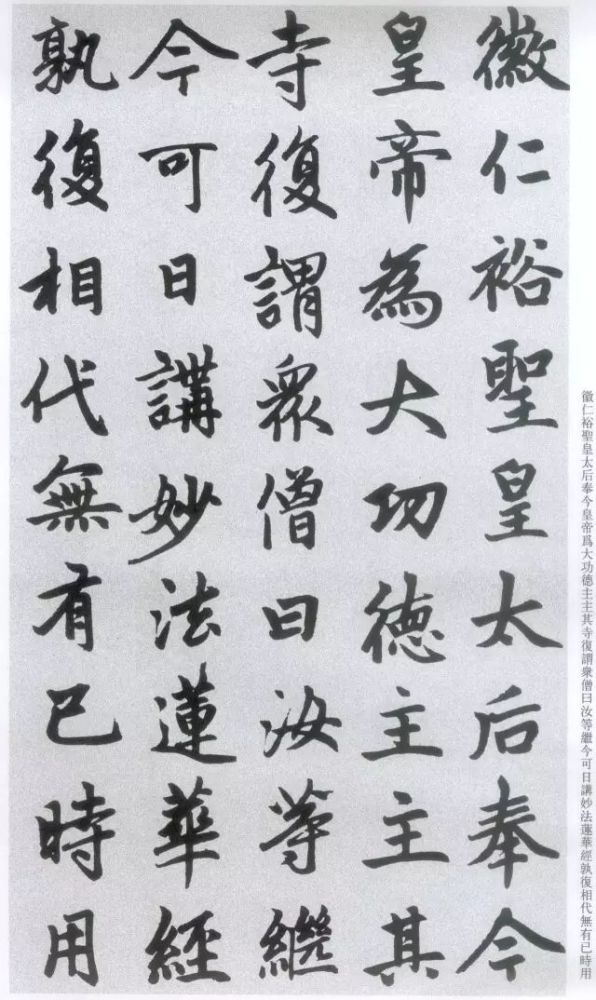 徽仁裕聖皇太后奉今
皇帝為大功德主主其
寺復謂眾僧曰汝等繼
今可日講妙法蓮華經
孰復相代無有已時用
徽仁裕聖皇太后奉今皇帝爲大功德主主其寺復謂衆僧曰汝等繼今可日講妙法蓮華經孰復相代無有已時用